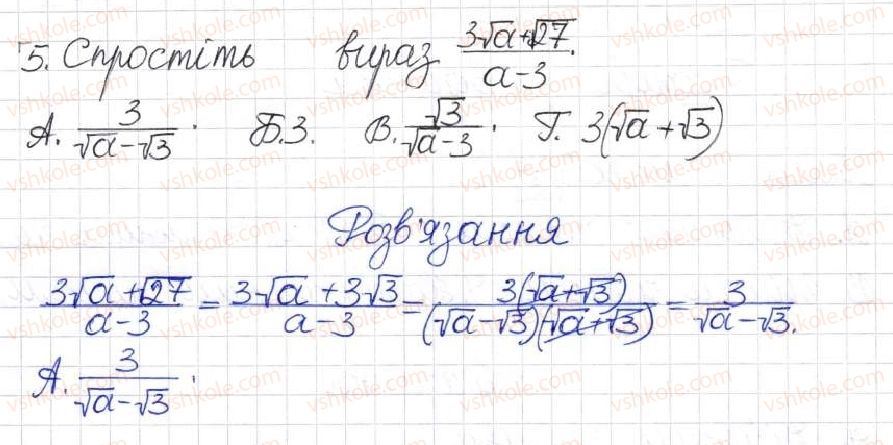 5. Спростіть вираз (3√a+√27)/(a-3).
А. 3/(√a-√3). Б. 3. В. √3/(√a-3). Г. 3(√a+√3)
Розв'язання
(3√a+√27)/(a-3) = (3·√a+3√3)/(a-3) = 3(√a+√3)/((√a-√3)(√a+√3)) = 3/(√a-√3).
А. 3/(√a-√3).
vshkole.com